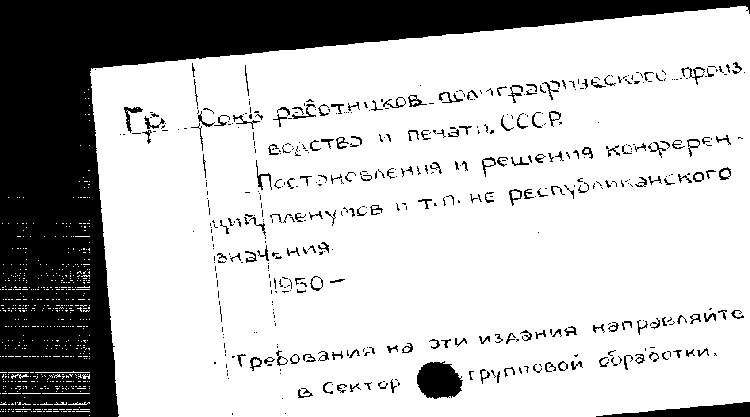 Гр Союз работников полиграфического произ
водства и печати, СССР.
Постановления и решения конферен-
ций, пленумов и т.п. не республиканского
значения.
1950 —
Требования на эти издания направляйте
в Сектор групповой обработки.